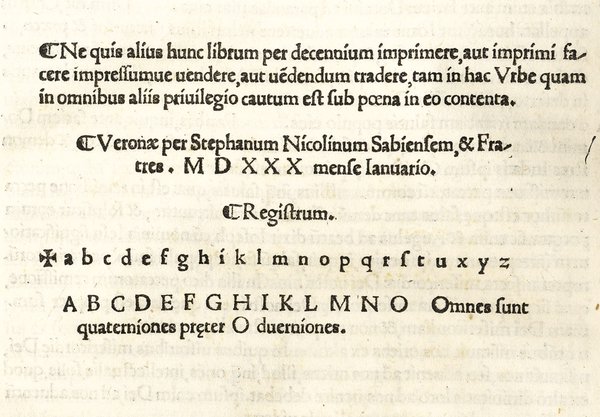 ℂNe quis alius hunc librum per decennium imprimere, aut imprimi fa-
cere impreſſumue uendere, aut uēdendum tradere, tam in hac Vrbe quam
in omnibus aliis priuilegio cautum eſt ſub pœna in eo contenta.
ℂVeronæ per Stephanum Nicolinum Sabienſem, & Fra-
tres. M D X X X menſe Ianuario.
ℂRegiſtrum.
✠ a b c d e f g h i k l m n o p q r ſ t u x y z
A B C D E F G H I K L M N O Omnes ſunt
quaterniones pręter O duerniones.